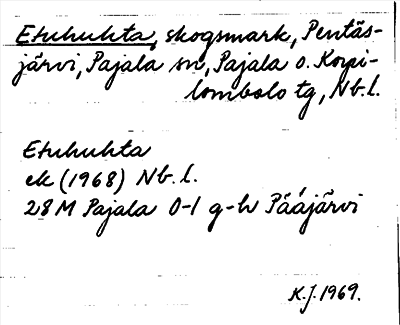 Etuhuhta, skogsmark, Pentäs-
järvi, Pajala sn, Pajala o. Korpi-
lombolo tg, Nb. l.
Etuhuhta
ek (1968) Nb. l.
28M Pajala 0-1 g-h Pääjärvi
K.J. 1969.